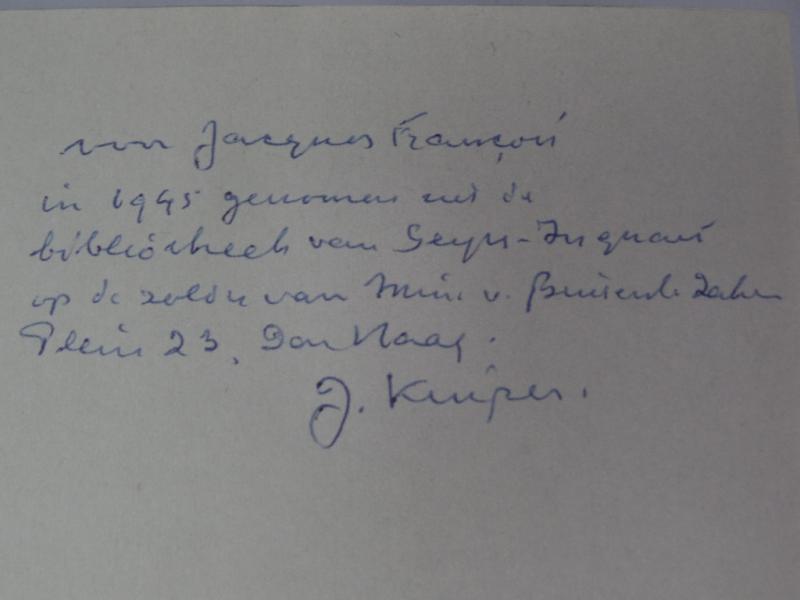 voor Jacques François
in 1945 genomen uit de
bibliotheek van Seyss-Inquart
op de zolder van Min. v. Buitenl. Zaken
Plein 23, Den Haag.
J. Kuiper.